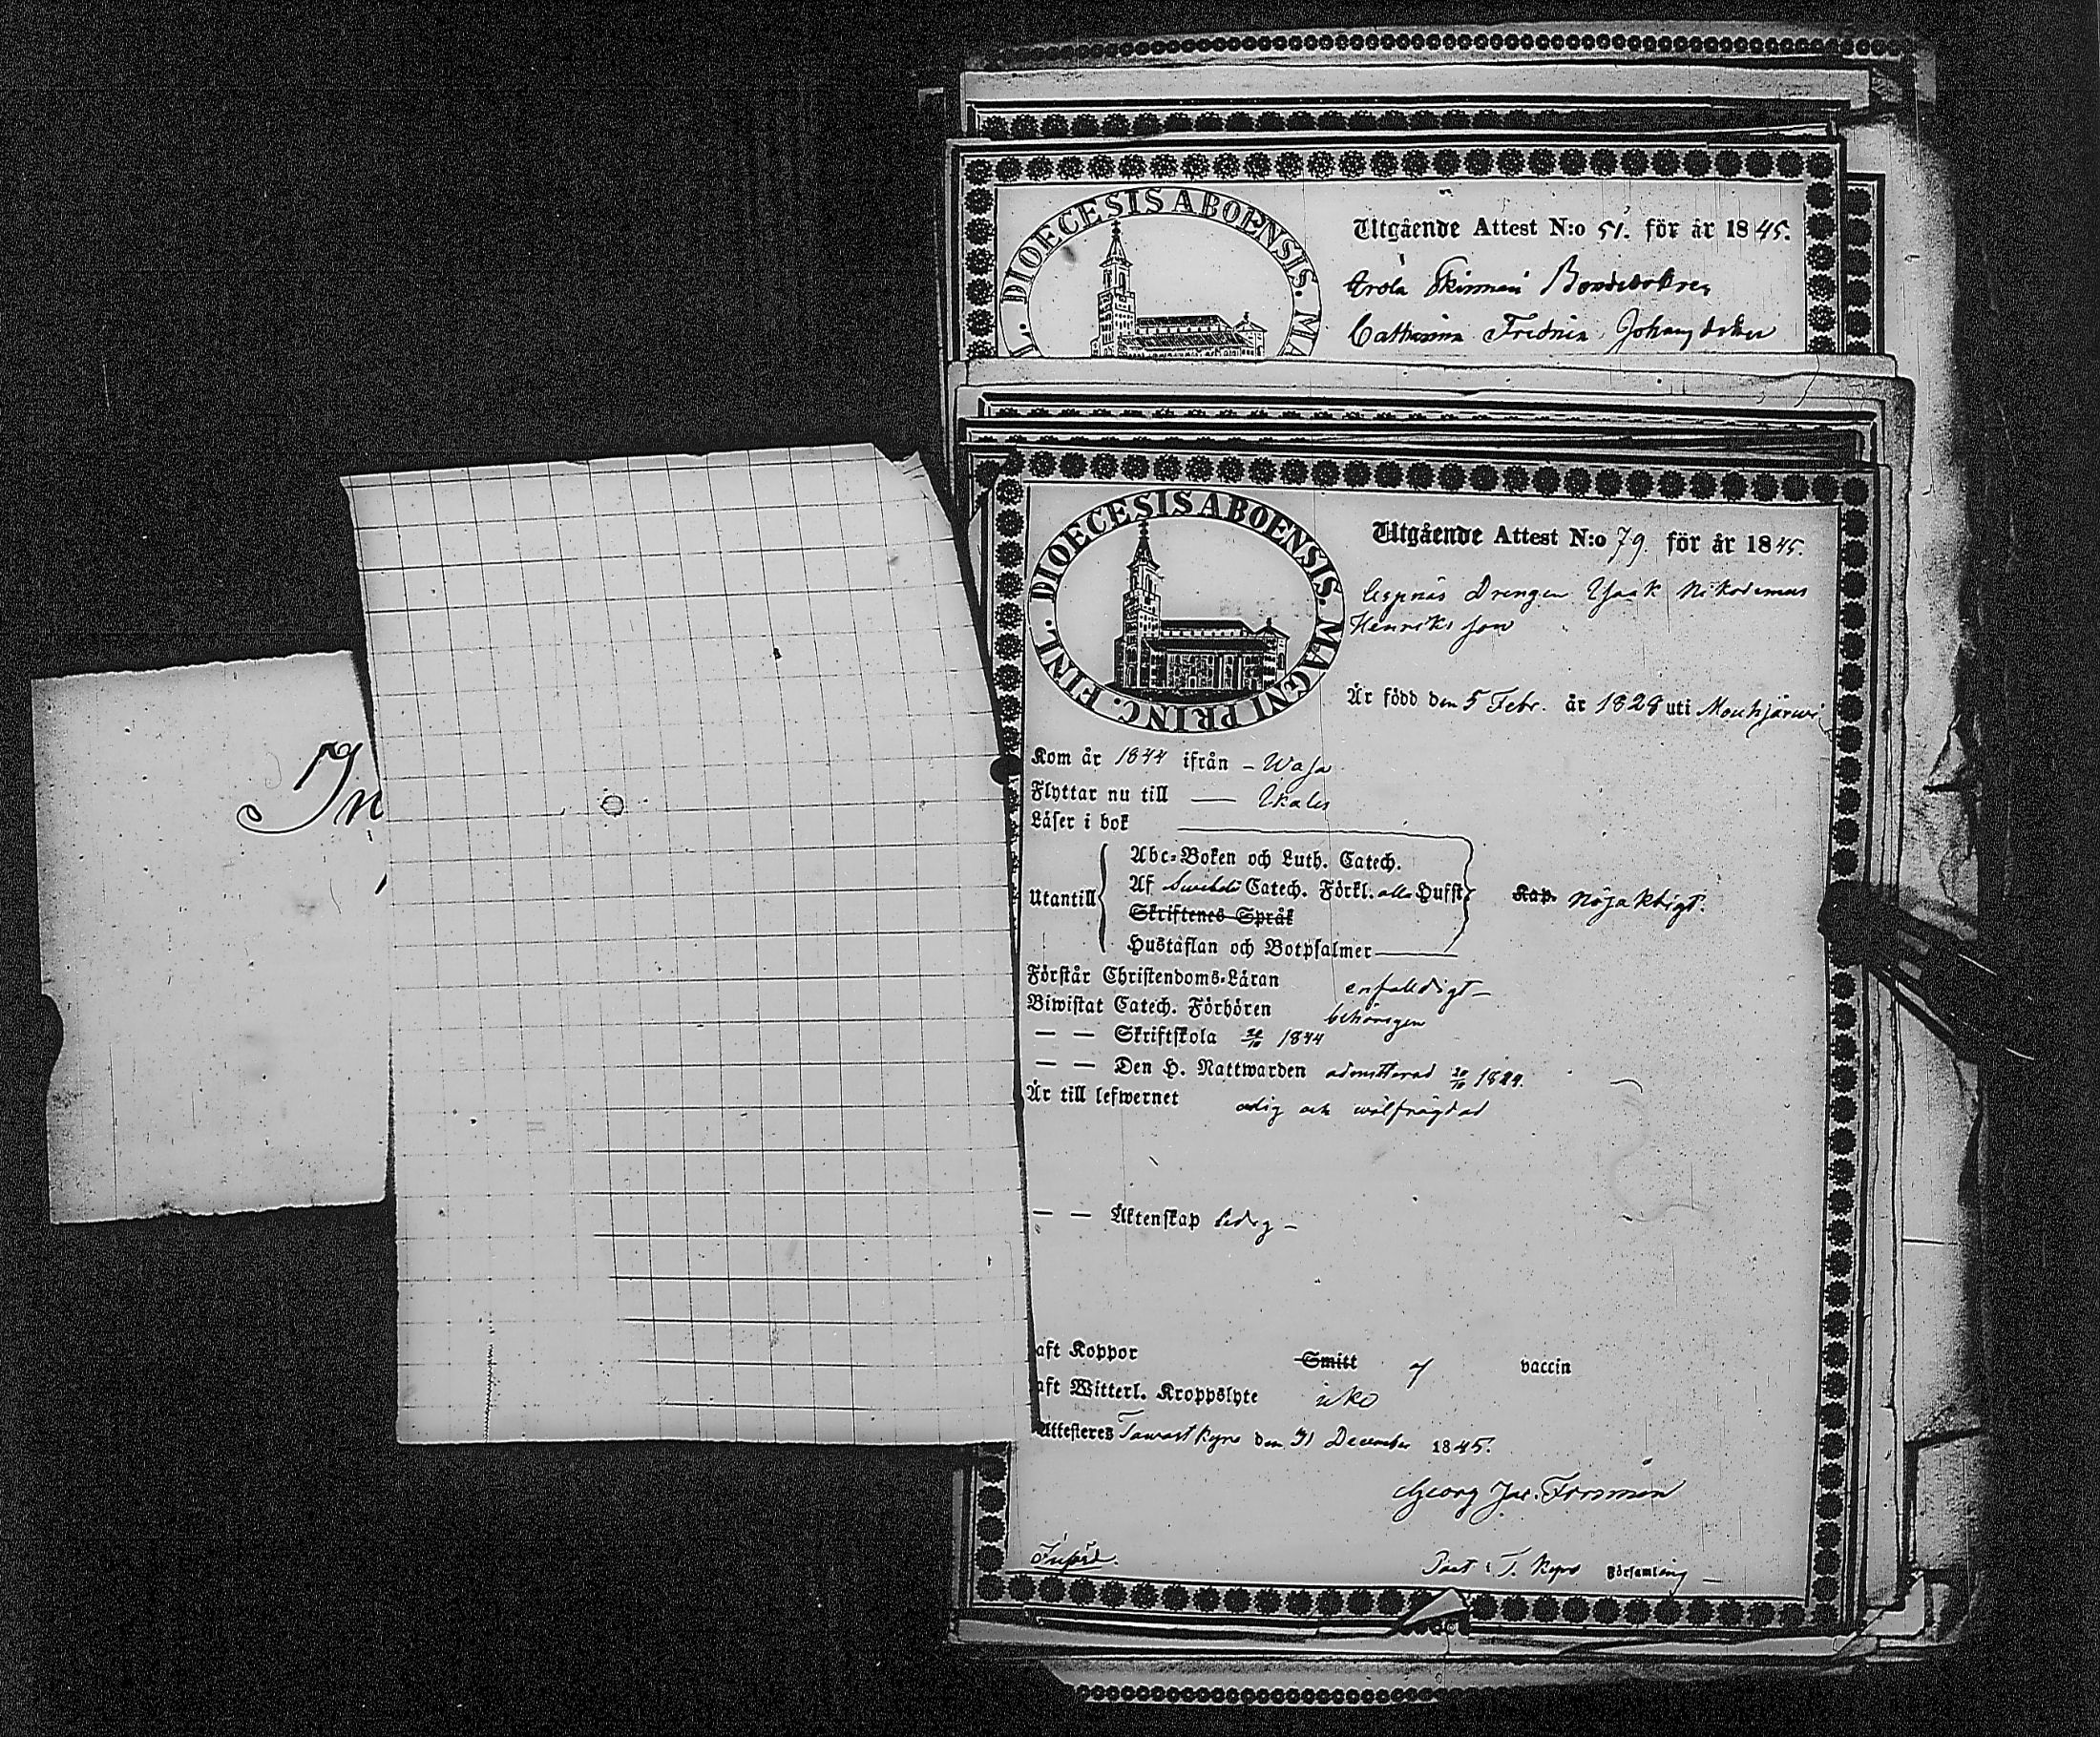 DIOECESIS ABOENSIS. MA
Utgående Attest N:o 51. för år 1845.
Catharina Fredrica Johansdotter
DIOECESIS ABOENSIS. MAGNI PRINC. FINL.
Utgående Attest N:o 79. för år 1845.
Drengen Isaak Nikodemus
Henriks son
Är född den 5 Febr. år 1828 uti Mouhijärwi
Kom år 1844 ifrån – Wasa
Flyttar nu till — Ikalis
Läser i bok
Utantill
Abc-Boken och Luth. Catech.
Af Swebelii Catech. Förkl. alla Hufst
Skriftenes Språk
Hustaflan och Botpsalmer
Kap. nöjaktigt.
Förstår Christendoms-Läran enfaldigt –
Biwistat Catech. Förhören behörigen
— — Skriftskola 1844
— — Den H. Nattwarden admitterad 1844.
Är till lefwernet ärlig och wälfrägdad
— — Äktenskap ledig –
aft Koppor Smitt vaccin
aft Witterl. Kroppslyte icke
Attesteres Tawastkyro den 31 December 1845.
Georg Jac. Forsman
Past i T. Kyro Församling
Införd.
In